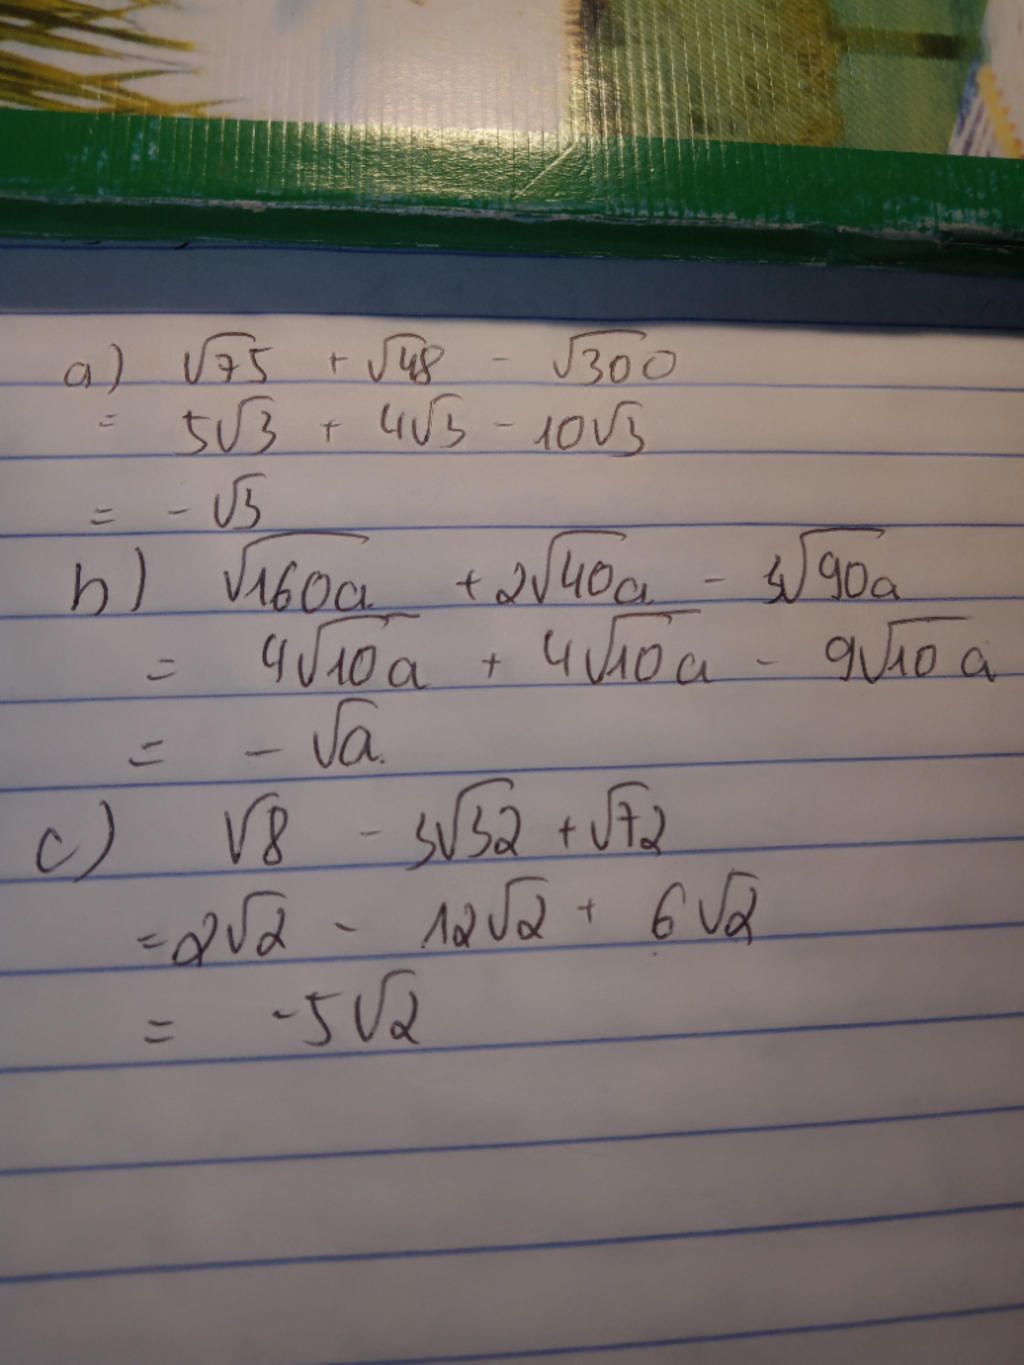 a) √75 + √48 - √300
= 5√3 + 4√3 - 10√3
= - √3
b) √160a + 2√40a - 3√90a
= 4√10a + 4√10a - 9√10a
= - √a.
c) √8 - 3√32 + √72
= 2√2 - 12√2 + 6√2
= -5√2